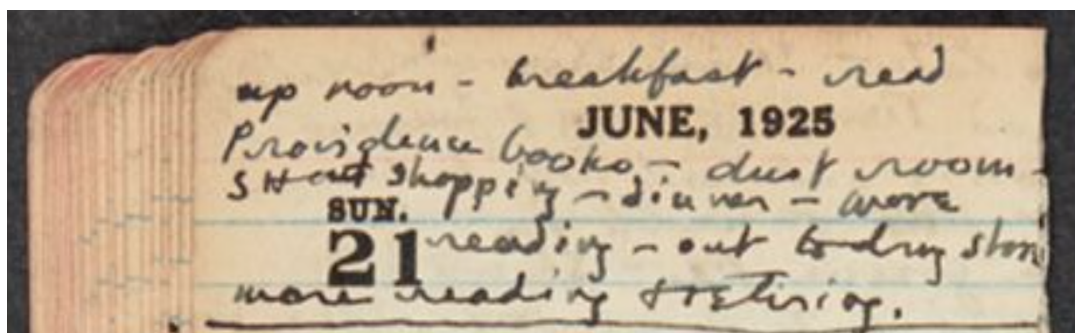 up noon - breakfast - read
JUNE, 1925
Providence books - dust room -
SH out shopping - dinner - more
SUN.
21 reading - out to drug store
more reading & retiring.